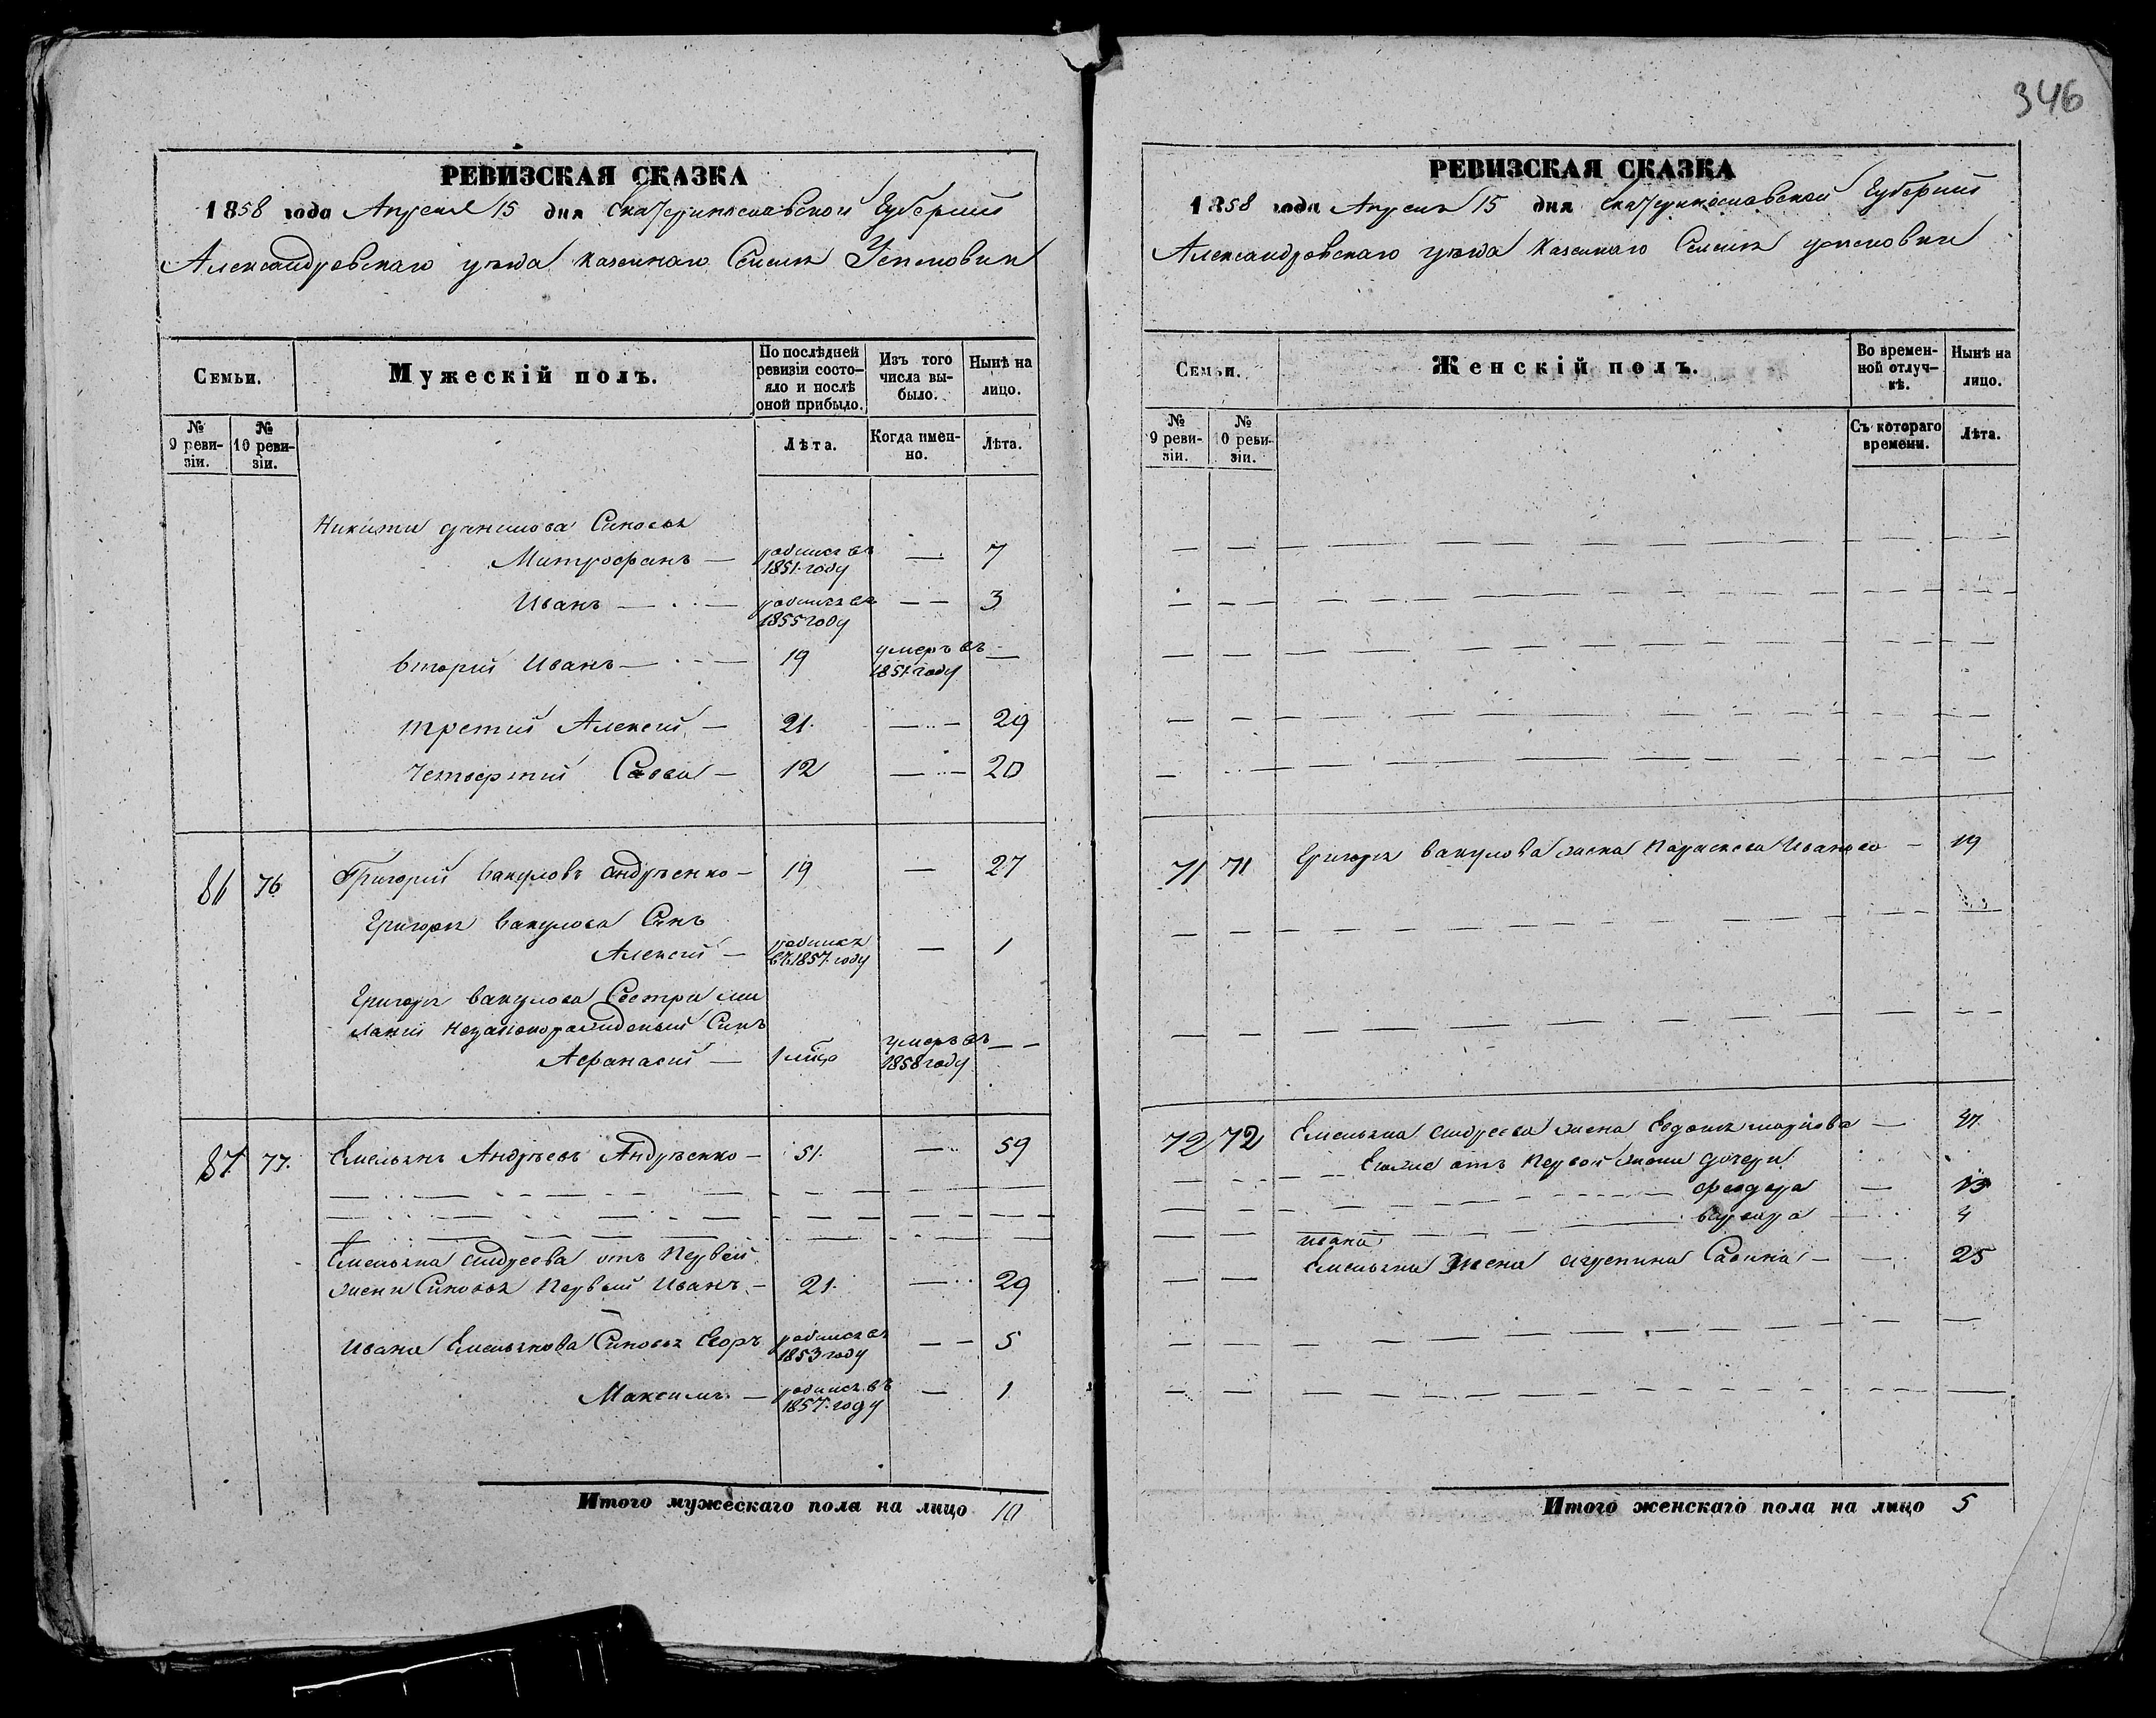 346
РЕВИЗСКАЯ СКАЗКА
1858 года Апреля 15 дня Екатеринославской Губернии
Александровскаго уезда казеннаго Селенія Успеновки
Семьи.
Мужескій полъ.
По послѣдней ревизіи состояло и послѣ оной прибыло.
Изъ того числа выбыло.
Нынѣ на лицо.
№ 9 ревизіи.
№ 10 ревизіи.
Лѣта.
Когда именно.
Лѣта.
Никиты данилова Сыновья
Митрофанъ — родился въ 1851 году — 7
Иванъ — родился въ 1855 году — 3
вторый Иванъ — 19 умеръ въ 1851 году —
третий Алексий — 21. — 29
Четвертий Савва — 12 — 20
86 76 Григорий вакуловъ андрѣенко — 19 — 27
Григорія вакулова Сынъ
Алексий — родился въ 1857 году — 1
Григорія вакулова Сестри ми
ланіи незаконорожденый Сынъ
Афанасий — умеръ въ 1858 году —
87 77. Емельянъ Андрѣевъ Андрѣенко — 51. — 59
Емельяна андреева отъ Первой
жени Сыновья Первый Иванъ — 21. — 29
Ивана Емельянова Сыновья Егоръ родился въ 1853 году — 5
Максимъ — родился въ 1857 году — 1
Итого мужескаго пола на лицо 10
РЕВИЗСКАЯ СКАЗКА
1858 года Апреля 15 дня Екатеринославской Губернии
Александровскаго уезда казеннаго Селенія успеновки
Семьи.
Женскій полъ.
Во временной отлучкѣ.
Нынѣ на лицо.
№ 9 ревизіи.
№ 10 ревизіи.
Съ котораго времени.
Лѣта.
71 71 Григорія вакулова жена Параскева Иванова — 19
72 72 Емельяна андреева жена Евдокія маркова — 47
Егоже отъ Первой жени дочери
феодора — 13
варвара — 4
ивана
Емельяна жена агрепина Савина — 25
Итого женскаго пола на лицо 5